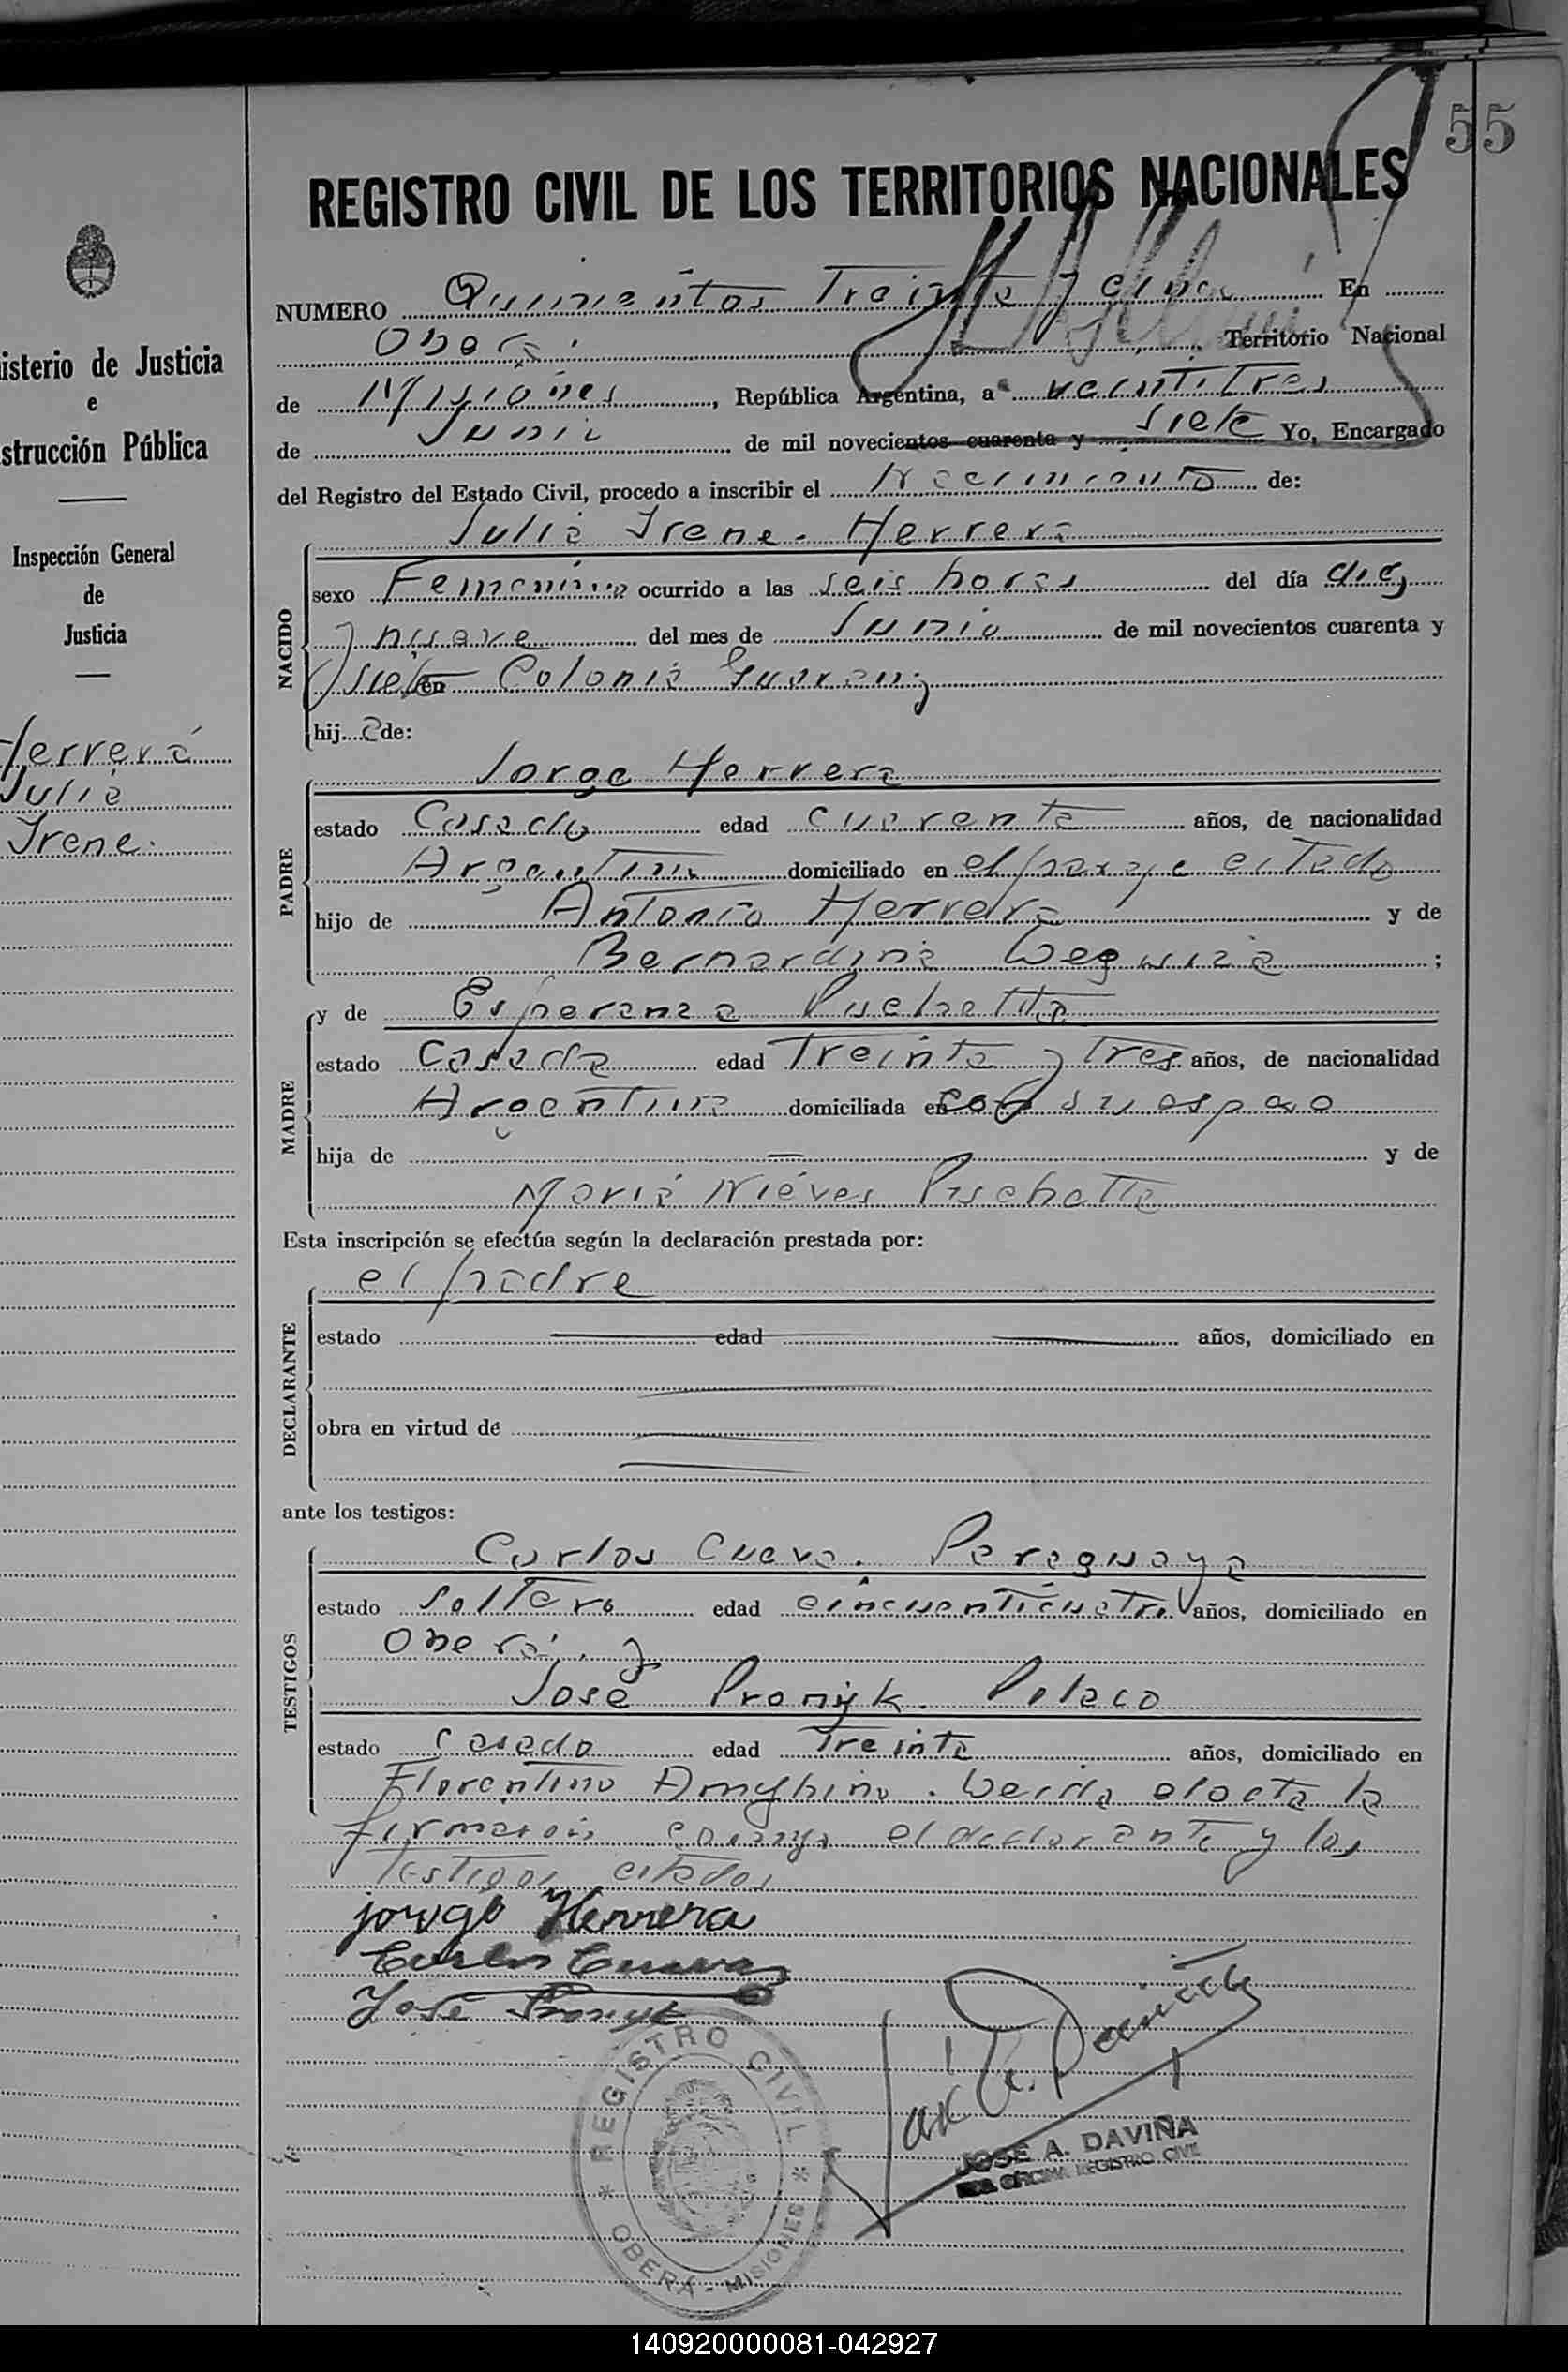 55
REGISTRO CIVIL DE LOS TERRITORIOS NACIONALES
NUMERO Quinientos Treinta y cinco En
Oberá Territorio Nacional
de Misiones, República Argentina, a veintitres
de Junio de mil novecientos cuarenta y siete Yo, Encargado
del Registro del Estado Civil, procedo a inscribir el Nacimiento de:
Julia Irene Herrera
NACIDO
sexo Femenino ocurrido a las seis horas del día diez
y nueve del mes de Junio de mil novecientos cuarenta y
siete en Colonia Guarany
hija de:
Jorge Herrera
PADRE
estado Casado edad cuarenta años, de nacionalidad
Argentino domiciliado en el paraje citado
hijo de Antonio Herrera y de
Bernardina ;
y de Esperanza
MADRE
estado Casada edad Treinta y tres años, de nacionalidad
Argentina domiciliada en su esposo
hija de — y de
Maria Nieves
Esta inscripción se efectúa según la declaración prestada por:
el padre
DECLARANTE
estado edad años, domiciliado en
obra en virtud de
ante los testigos:
Carlos Cueva. Paraguayo
TESTIGOS
estado Soltero edad años, domiciliado en
Oberá. y
José Pronyk. Polaco
estado Casado edad Treinta años, domiciliado en
Florentino Ameghino. Leida el acta la
firmaron conmigo el declarante y los
testigos citados
jorge Herrera
Carlos Cueva
José Pronyk
REGISTRO CIVIL
OBERÁ - MISIONES
JOSE A. DAVIÑA
OFICINA REGISTRO CIVIL
isterio de Justicia
e
strucción Pública
Inspección General
de
Justicia
Herrera
Julia
Irene.
140920000081-042927